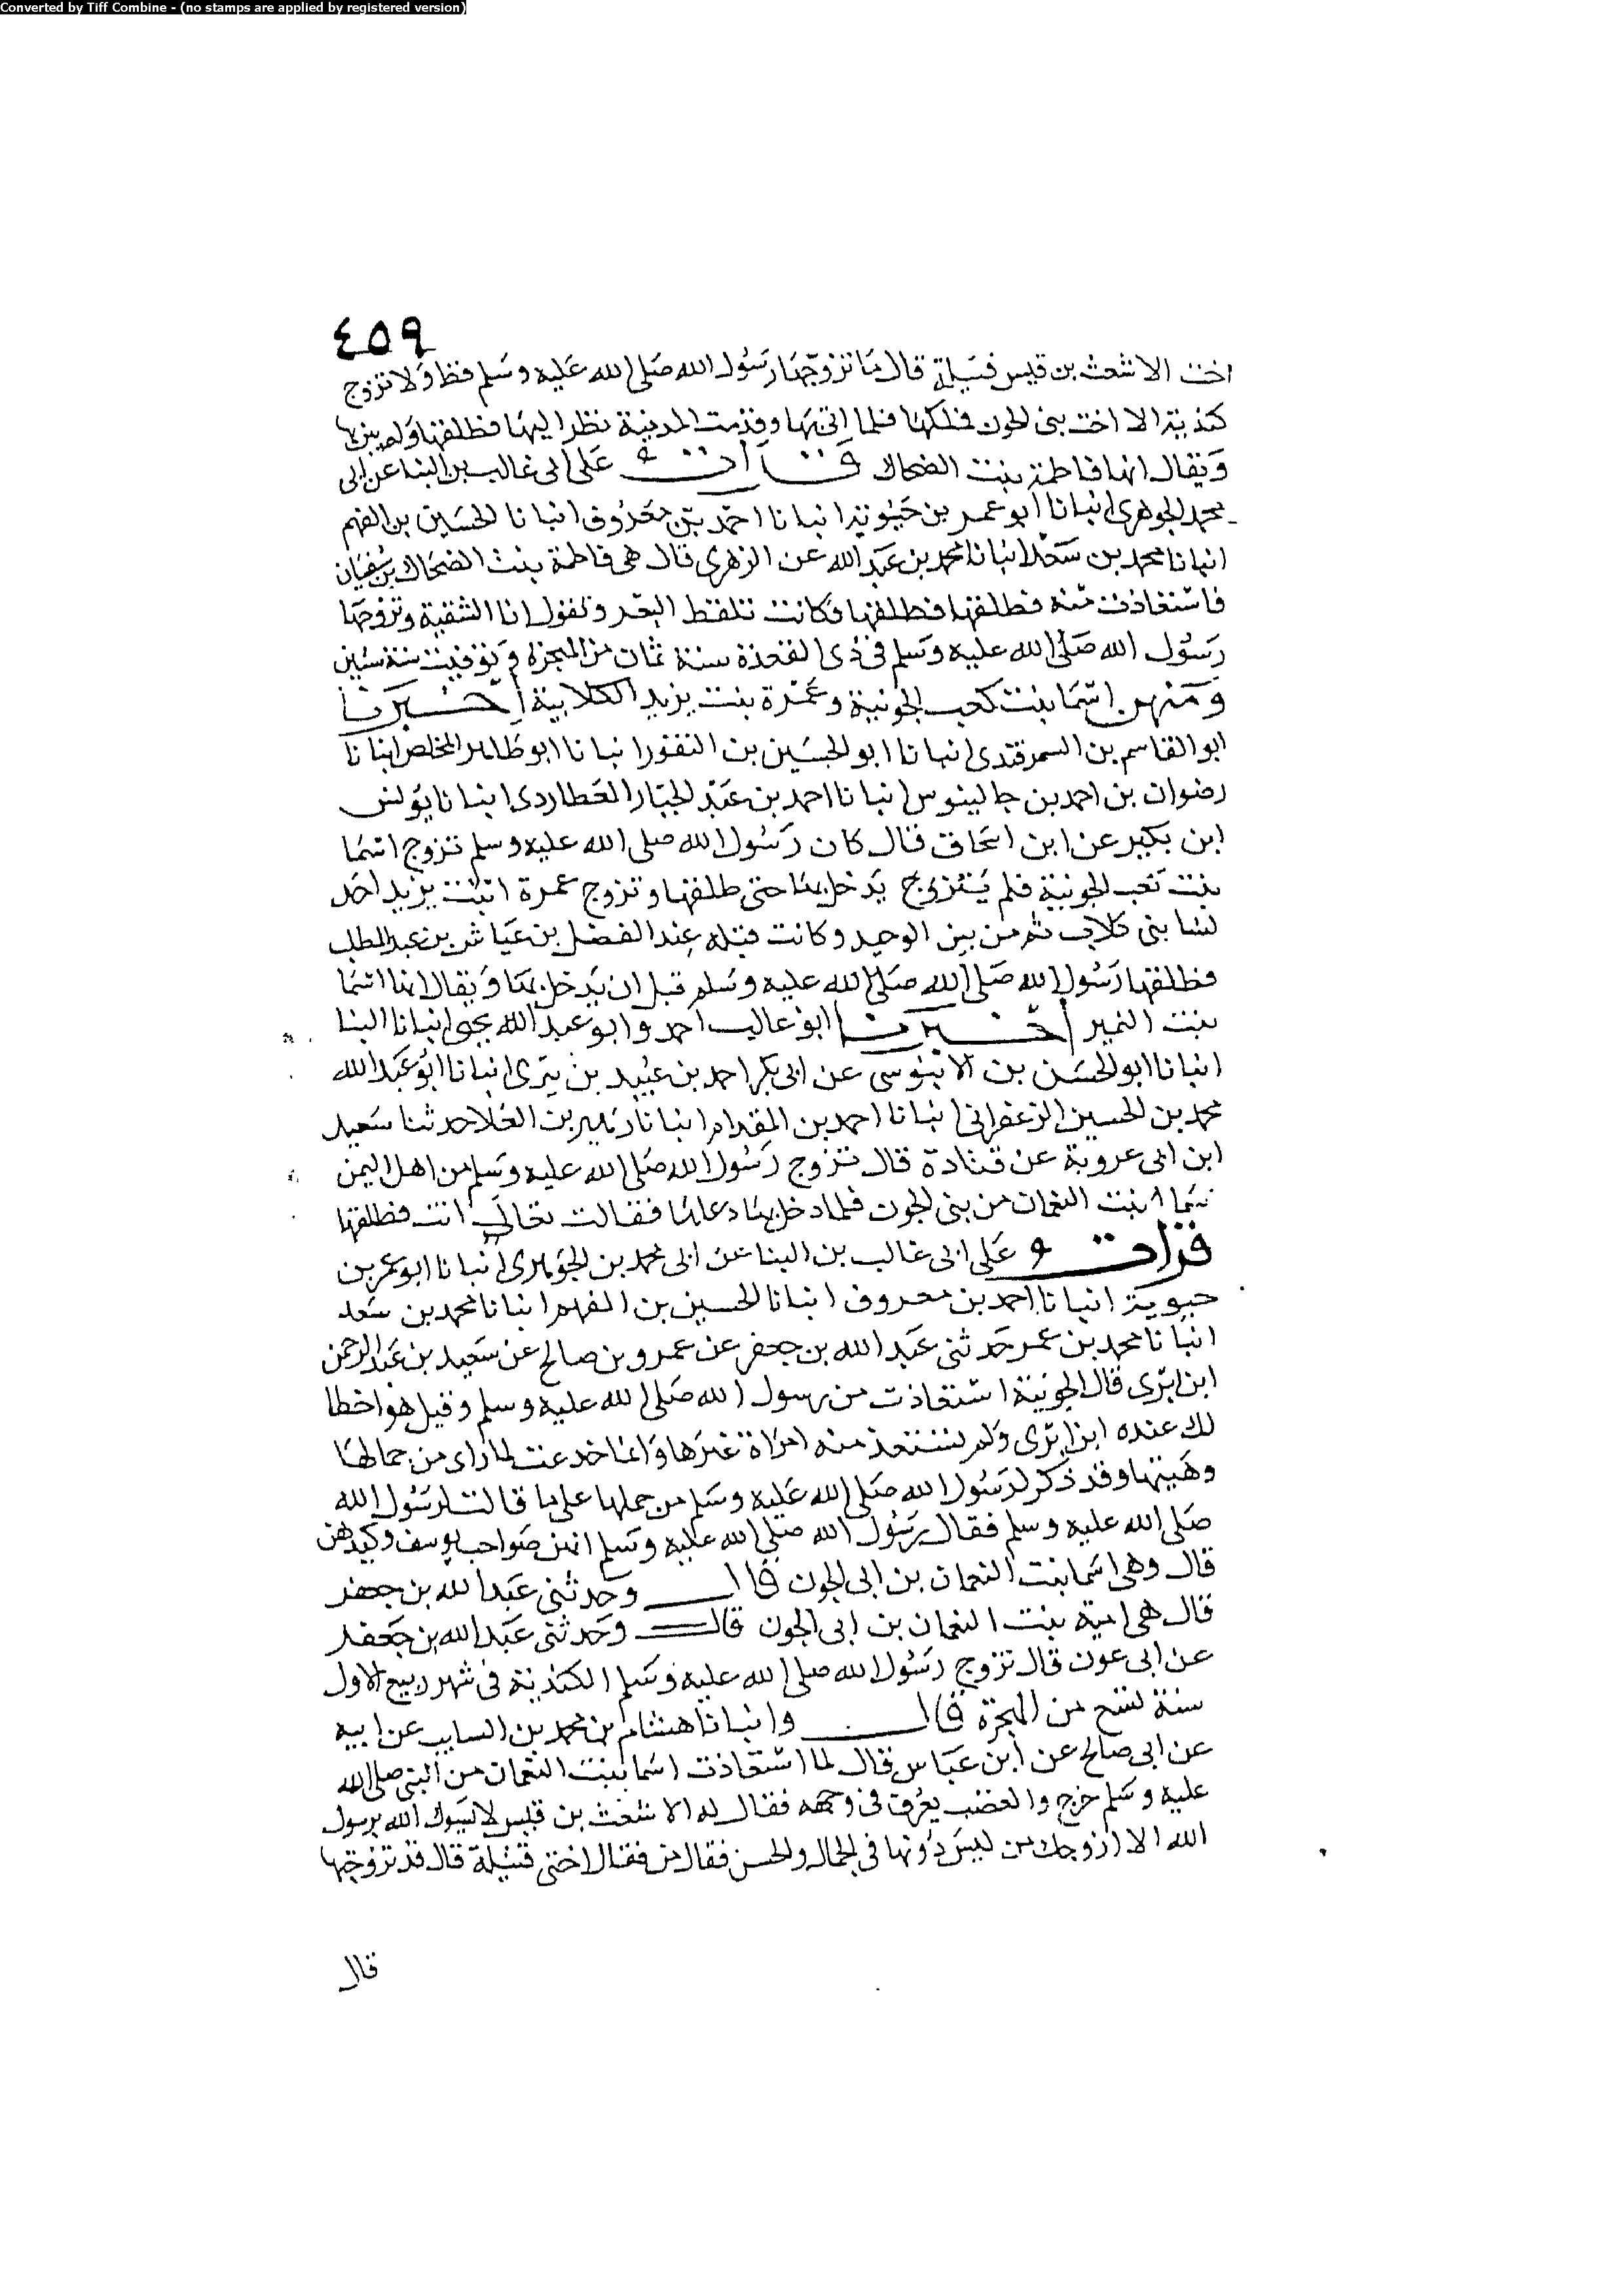 Converted by Tiff Combine - (no stamps are applied by registered version)
٤٥٩
اخت الاشعث بن قيس قتيلة قال ما تزوجها رسول الله صلى الله عليه وسلم قط ولا تزوج
كندية الا اخت بنى الجون فملكها فلما اتى بها وقدمت المدينة نظر اليها فطلقها ولم يبن بها
ويقال انها فاطمة بنت الضحاك قرأت على ابى غالب بن البنا عن ابى
محمد الجوهرى انبانا ابو عمر بن حيوية انبانا احمد بن معروف انبانا الحسين بن الفهم
انبانا محمد بن سعد انبانا محمد بن عبد الله عن الزهرى قال هى فاطمة بنت الضحاك بن سفيان
فاستعاذت منه فطلقها فطلقها فكانت تلقط البعر وتقول انا الشقية وتزوجها
رسول الله صلى الله عليه وسلم فى ذى القعدة سنة ثمان من الهجرة وتوفيت سنة ستين
ومنهن اسما بنت كعب الجونية وعمرة بنت يزيد الكلابية اخبرنا
ابو القاسم بن السمرقندى انبانا ابو الحسين بن النقور انبانا ابو طاهر المخلص انبانا
رضوان بن احمد بن جالينوس انبانا احمد بن عبد الجبار العطاردى انبانا يونس
ابن بكير عن ابن اسحاق قال كان رسول الله صلى الله عليه وسلم تزوج اسما
بنت كعب الجونية فلم يتزوج يدخل بها حتى طلقها وتزوج عمرة ابنت يزيد احد
نسا بنى كلاب ثم من بين الوحيد وكانت قبله عند الفضل بن عياش بن عبد المطلب
فطلقها رسول الله صلى الله صلى الله عليه وسلم قبل ان يدخل بها ويقال انها اسما
بنت النمير اخبرنا ابو غالب احمد وابو عبد الله يحيى انبانا البنا
انبانا ابو الحسن بن الابنوسى عن ابى بكر احمد بن عبيد بن بيرى انبانا ابو عبد الله
محمد بن الحسين الزعفرانى انبانا احمد بن المقدام انبانا زهير بن العلا حدثنا سعيد
ابن ابى عروبة عن قتادة قال تزوج رسول الله صلى الله عليه وسلم من اهل اليمن
سما ابنت النعمان من بنى الجون فلما دخل بها دعاها فقالت تعال انت فطلقها
قرات على ابى غالب بن البنا عن ابى محمد بن الجوهرى انبانا ابو عمر بن
حيوية انبانا احمد بن معروف انبانا الحسين بن الفهم انبانا محمد بن سعد
انبانا محمد بن عمر حدثنى عبد الله بن جعفر عن عمرو بن صالح عن سعيد بن عبد الرحمن
ابن ابزى قال الجونية استعاذت من رسول الله صلى الله عليه وسلم وقيل هو احظا
لك عنده ابن ابزى ولم تستعذ منه امراة غيرها وانما خدعت لما راى من جمالها
وهيتها وقد ذكر لرسول الله صلى الله عليه وسلم من حملها على ما قالت لرسول الله
صلى الله عليه وسلم فقال رسول الله صلى الله عليه وسلم انهن صواحب يوسف وكيدهن
قال وهى اسما بنت النعمان بن ابى الجون قال وحدثنى عبد الله بن جعفر
قال هى امية بنت النعمان بن ابى الجون قال وحدثنى عبد الله بن جعفر
عن ابى عون قال تزوج رسول الله صلى الله عليه وسلم الكندية فى شهر ربيع الاول
سنة تسع من الهجرة قال وانبانا هشام بن محمد بن السايب عن ابيه
عن ابى صالح عن ابن عباس قال لما استعاذت اسما بنت النعمان من النبى صلى الله
عليه وسلم خرج والغضب يعرف فى وجهه فقال له الاشعث بن قيس لا يسوك الله يرسول
الله الا ازوجك من ليس دونها فى الجمال والحسن فقال من فقال اختى قتيلة قال قد تزوجتها
قال